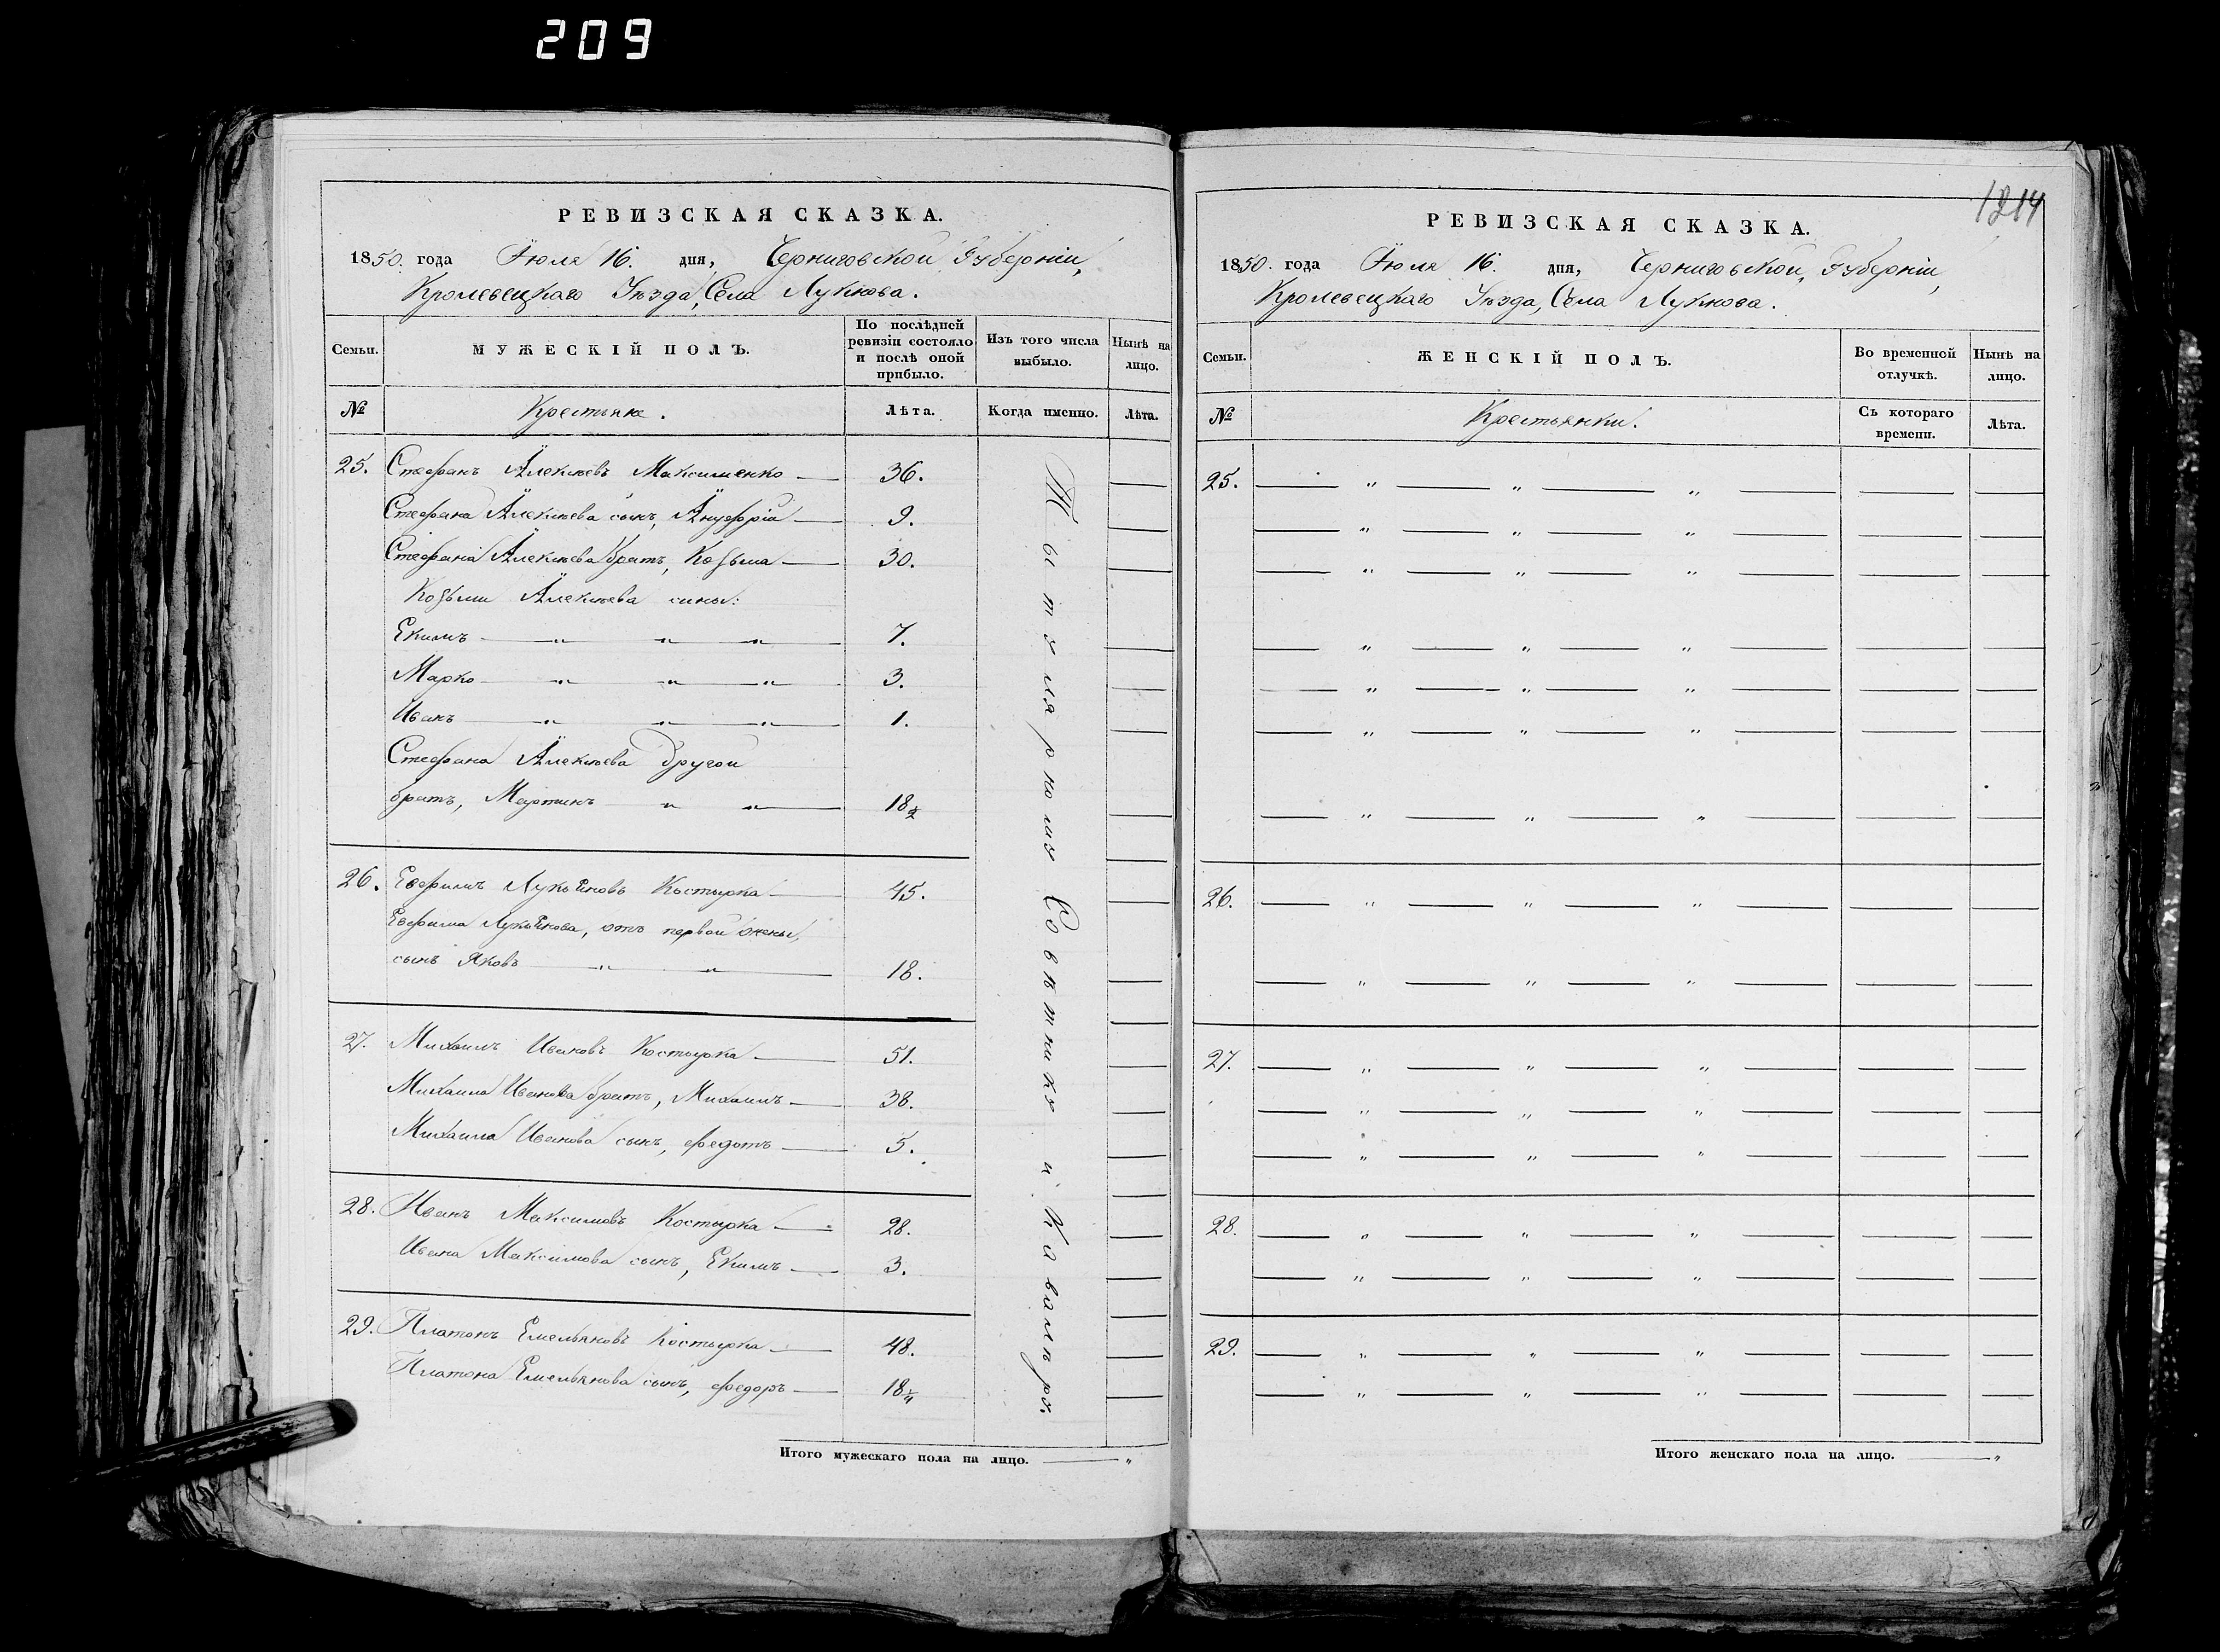 209
РЕВИЗСКАЯ СКАЗКА.
1850. года Іюля 16. дня, Черниговской Губерніи,
Кролевецкаго Уѣзда, Села Лукнова.
Семьи.
МУЖЕСКІЙ ПОЛЪ.
По послѣдней ревизіи состояло и послѣ оной прибыло.
Изъ того числа выбыло.
Нынѣ на лицо.
№
Крестьяне.
Лѣта.
Когда именно.
Лѣта.
25. Стефанъ Алексѣевъ Максименко 36.
Стефана Алексѣева сынъ, Ануфрій 9.
Стефана Алексѣева братъ, Козьма 30.
Козьмы Алексѣева сыны:
Екимъ " " " 7.
Марко " " " 3.
Иванъ " " " 1.
Стефана Алексѣева другой
братъ, Мартинъ " " 18½
26. Евфимъ Лукьяновъ Костырка 45.
Евфима Лукьянова, отъ первой жены,
сынъ Яковъ " " 18.
27. Михаилъ Ивановъ Костырка 51.
Михаила Иванова братъ, Михаилъ 38.
Михаила Иванова сынъ, Федотъ 5.
28. Иванъ Максимовъ Костырка 28.
Ивана Максимова сынъ, Екимъ 3.
29. Платонъ Емельяновъ Костырка 48.
Платона Емельянова сынъ, Федоръ 18¼
Титулярному Совѣтнику и Кавалѣру.
Итого мужескаго пола на лицо. "
1214
РЕВИЗСКАЯ СКАЗКА.
1850. года Іюля 16. дня, Черниговской Губерніи,
Кролевецкаго Уѣзда, Села Лукнова.
Семьи.
ЖЕНСКІЙ ПОЛЪ.
Во временной отлучкѣ.
Нынѣ на лицо.
№
Крестьянки.
Съ котораго времени.
Лѣта.
25. " " "
" " "
" " "
" " "
" " "
" " "
" " "
26. " " "
" " "
27. " " "
" " "
" " "
28. " " "
" " "
29. " " "
" " "
Итого женскаго пола на лицо. "